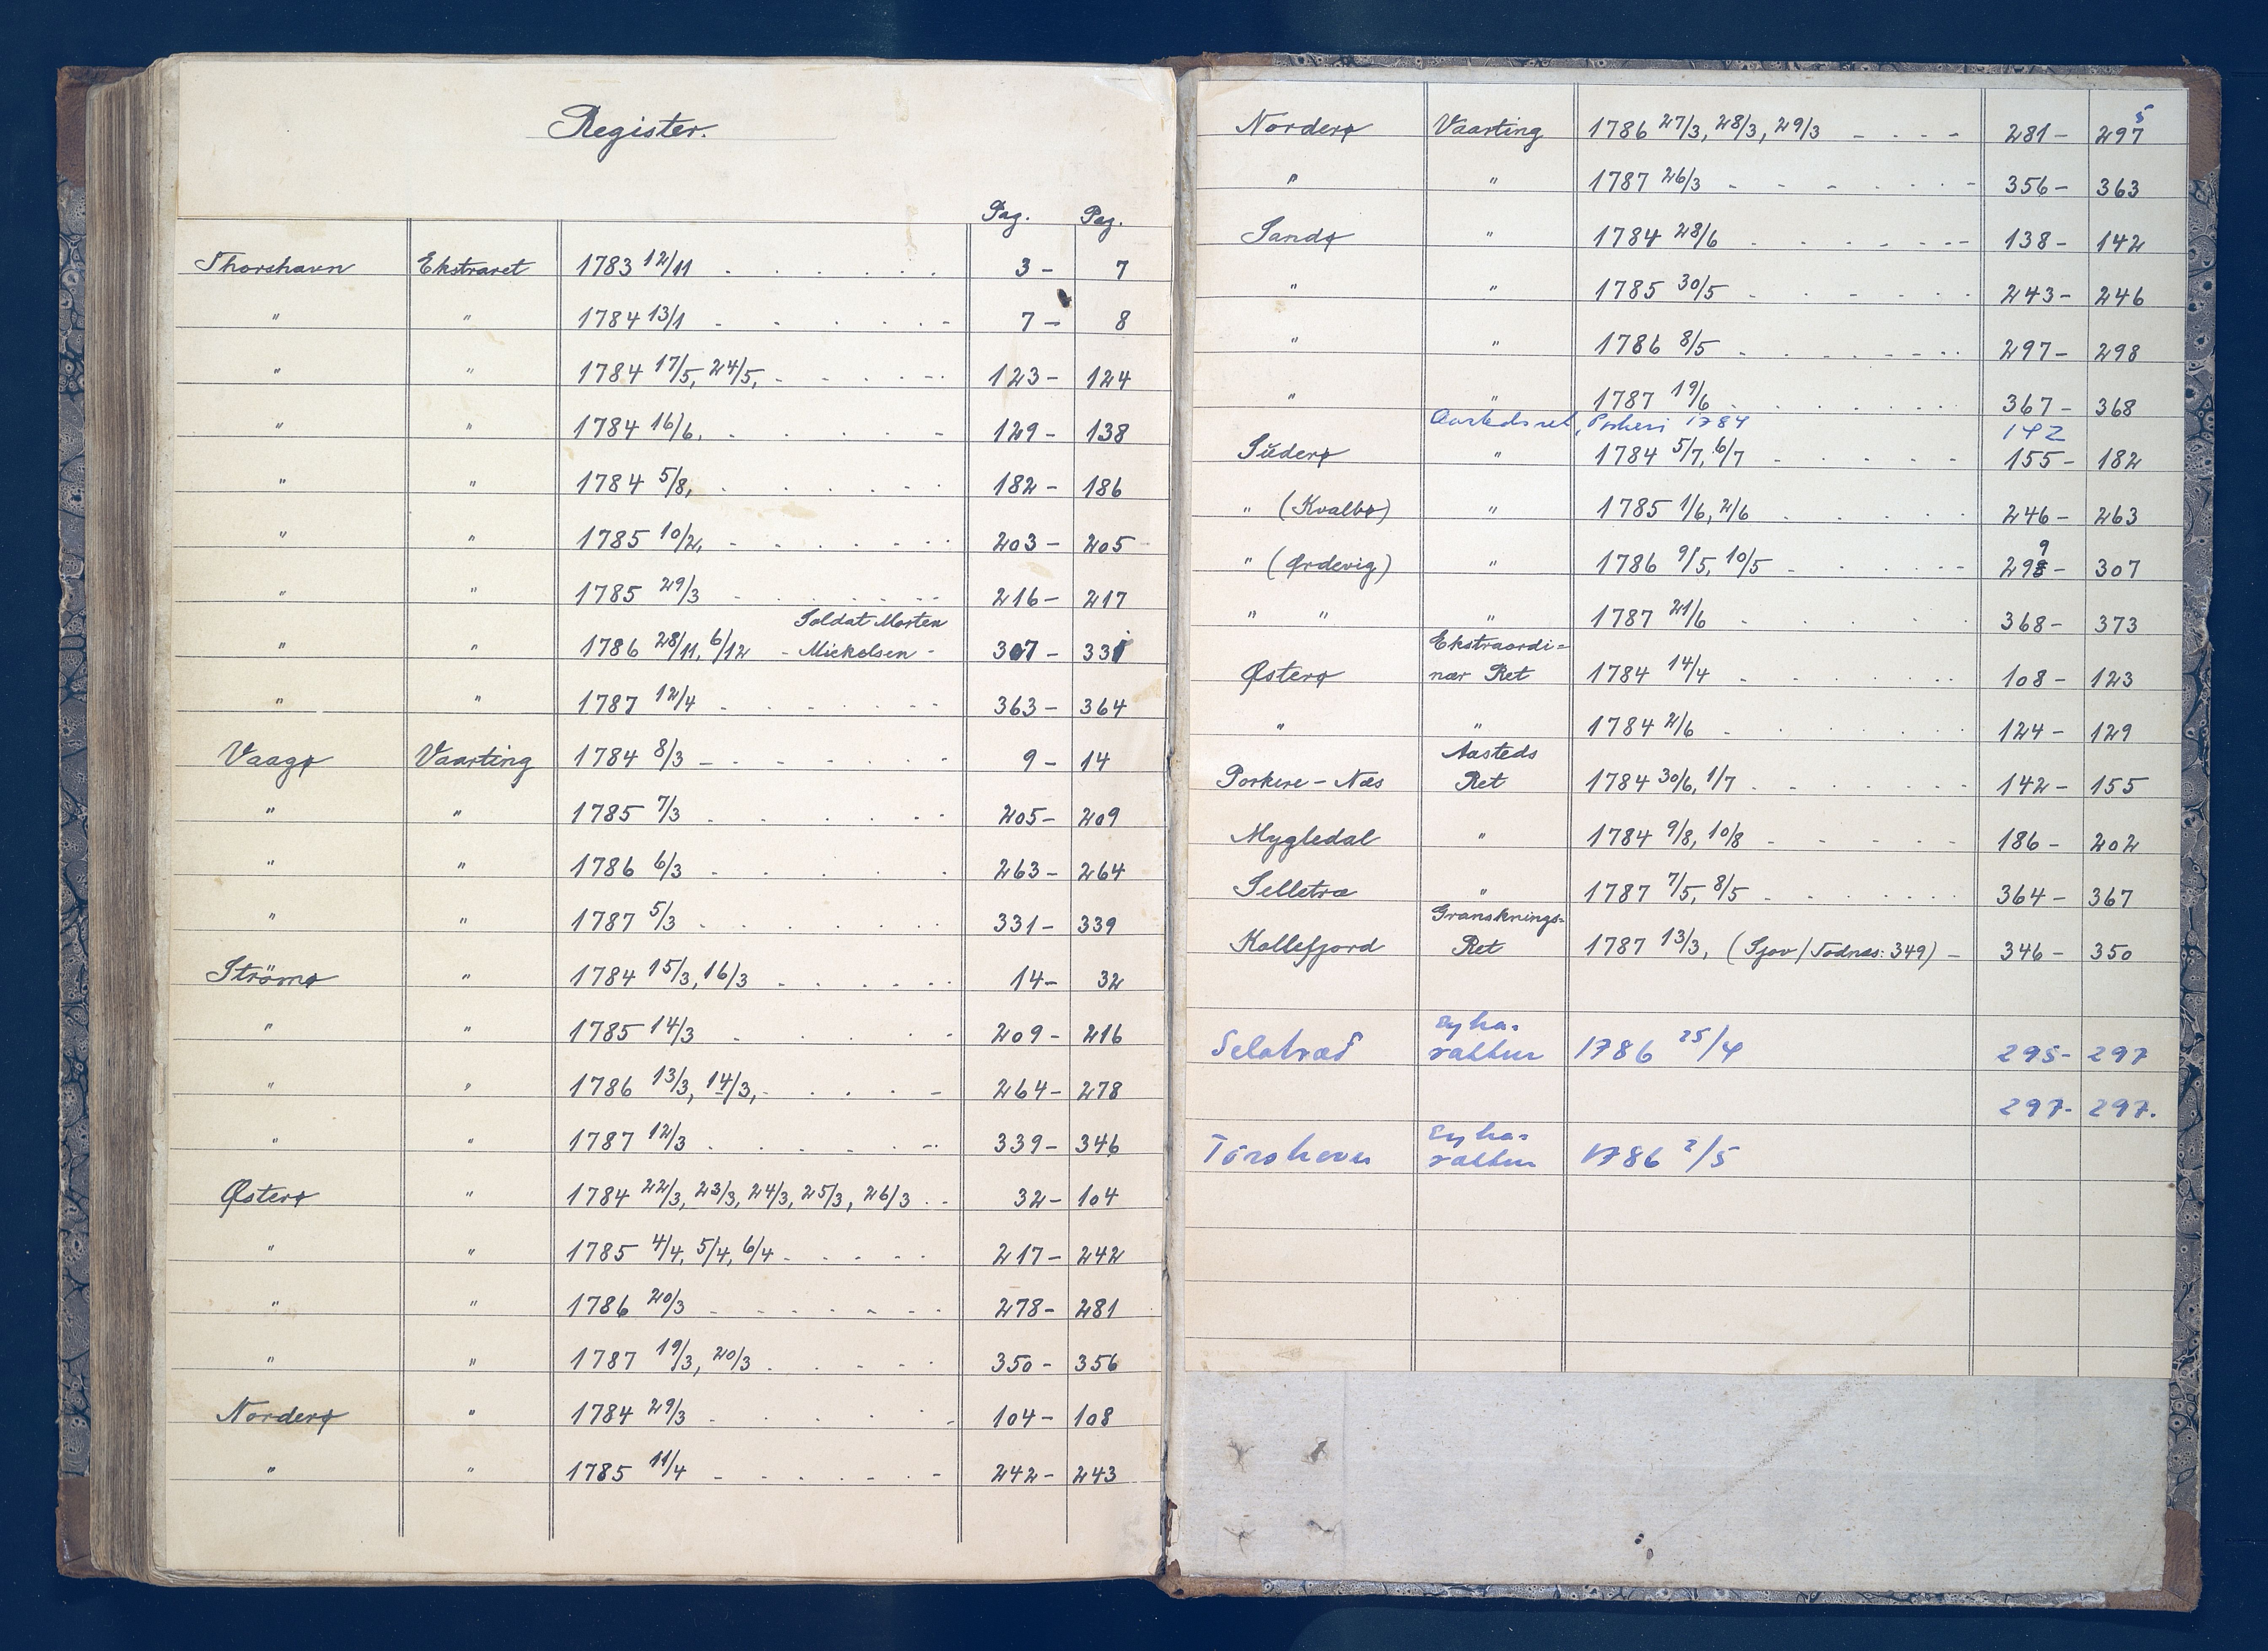 Register.
Pag. Pag.
Thorshavn Ekstraret 1783 12/11 . . . . . . 3 - 7
" " 1784 13/1 - - . . . . - 7 - 8
" " 1784 17/5, 24/5, - - . . - - 123 - 124
" " 1784 16/6, . . . . - 129 - 138
" " 1784 5/8, . . . . . 182 - 186
" " 1785 10/2, - . . . . . 203 - 205
" " 1785 29/3 - . . . . . 216 - 217
Soldat Morten
" " 1786 28/11, 6/12 - Mickelsen - 307 - 331
" " 1787 12/4 - . . . . - - 363 - 364
Vaagø Vaarting 1784 8/3 - - . . . . 9 - 14
" " 1785 7/3 . . . . . 205 - 209
" " 1786 6/3 . . . . . 263 - 264
" " 1787 5/3 . . . . . . 331 - 339
Strömø " 1784 15/3, 16/3 . . . . . 14 - 32
" " 1785 14/3 . . . . - 209 - 216
" " 1786 13/3, 14/3, - . . . - 264 - 278
" " 1787 12/3 . . . . . - 339 - 346
Østerø " 1784 22/3, 23/3, 24/3, 25/3, 26/3 . . 32 - 104
" " 1785 4/4, 5/4, 6/4 - . . . . 217 - 242
" " 1786 20/3 - - - - - - 278 - 281
" " 1787 19/3, 20/3 . . . . . 350 - 356
Norderø " 1784 29/3 . . . . . - 104 - 108
" " 1785 11/4 - . . . . - 242 - 243
5
Norderø Vaarting 1786 27/3, 28/3, 29/3 - - - - 281 - 297
" " 1787 26/3 - - - - . . - 356 - 363
Sandø " 1784 28/6 . . . . - - 138 - 142
" " 1785 30/5 . . . . . . 243 - 246
" " 1786 8/5 . . . . . . 297 - 298
" " 1787 19/6 . . . . . . 367 - 368
Aastedsret, Porkeri 1784 142
Süderø " 1784 5/7, 6/7 - . . . - 155 - 182
" (Kvalbø) " 1785 1/6, 2/6 . . . . . 246 - 263
9
" (Ørdevig) " 1786 9/5, 10/5 - . . . - - 298 - 307
" " " 1787 21/6 . . . . . 368 - 373
Ekstraordi=
Østerø nær Ret 1784 14/4 - . . . . . 108 - 123
" " 1784 2/6 . . . . . . 124 - 129
Aasteds
Porkere - Næs Ret 1784 30/6, 1/7 . . . . . - 142 - 155
Mygledal " 1784 9/8, 10/8 - . . . - 186 - 202
Selletræ " 1787 7/5, 8/5 - . . . . . 364 - 367
Gransknings=
Kollefjord Ret 1787 13/3, (Sjov / Todnæs: 349) - 346 - 350
eyka-
Selatrað rættur 1786 25/4 295 - 297
297 - 297.
eyka-
Tórshavn rættur 1786 2/5